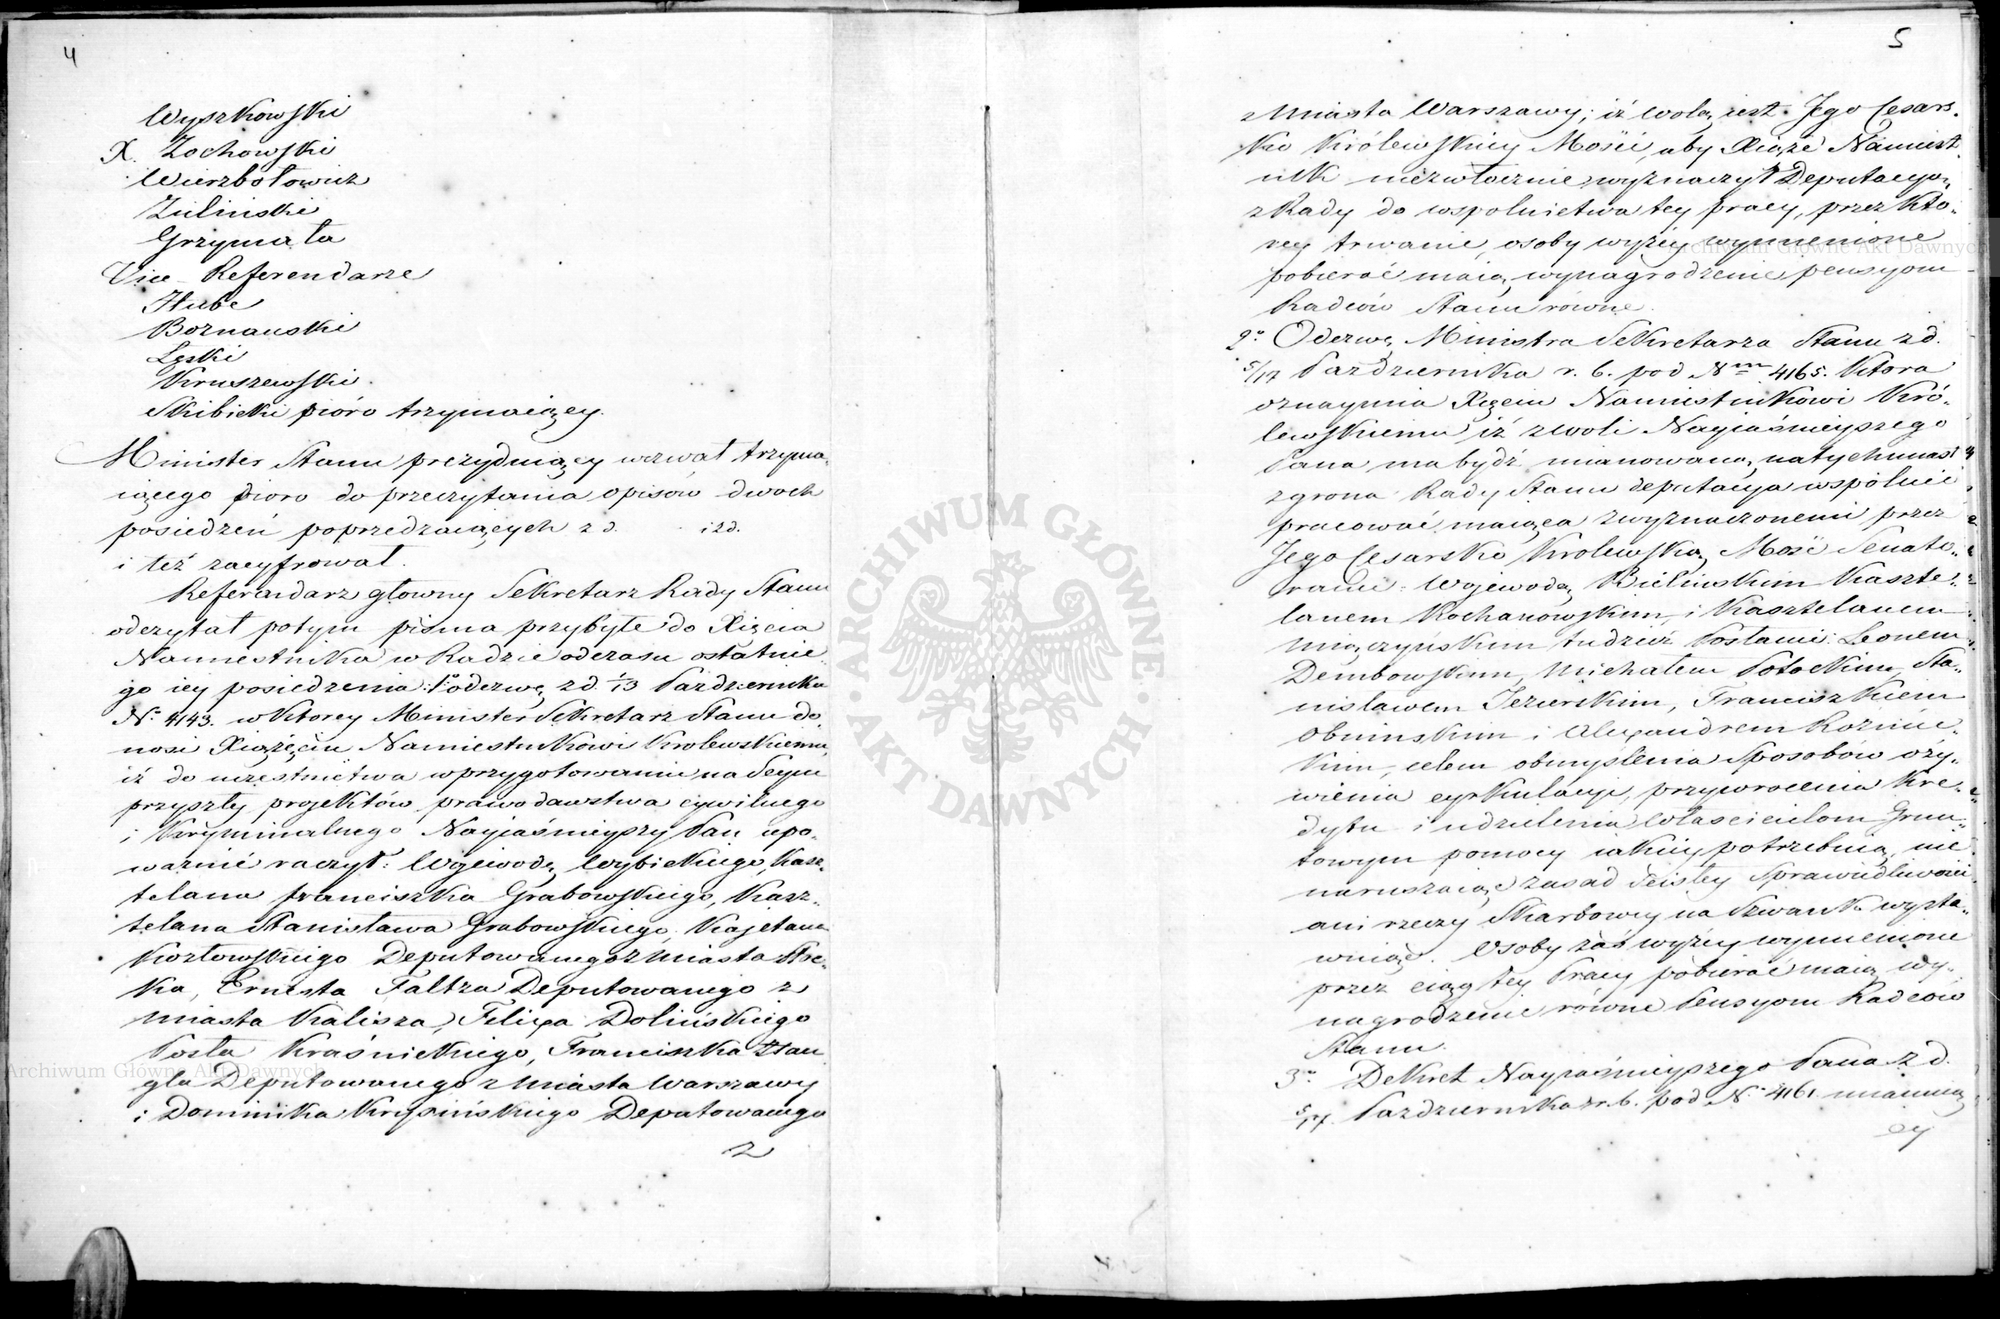 4
Wyszkowski
X. Zochowski
Wierzbołowicz
Zieliński
Grzymała
Vice-Referendarze
Hube
Boznański
Łęski
Kruszewski
Skibicki pióro trzymaiący.
Minister Stanu prezyduiący wezwał trzyma-
iącego pioro do przeczytania opisów dwoch
posiedzeń poprzedzaiących z d. i z d.
i też zacyfrował.
Referendarz głowny Sekretarz Rady Stanu
odczytał potym pisma przybyłe do Xięcia
Namiestnika w Radzie od czasu ostatnie-
go iey posiedzenia: 1o odezwę z d. 1/13 Października
No 4143. w ktorey Minister Sekretarz Stanu do-
nosi Xiążęciu Namiestnikowi Krolewskiemu,
iż do uczestnictwa w przygotowaniu na Seym
przyszły projektów prawodawstwa cywilnego
i kryminalnego Nayiaśnieyszy Pan upo-
ważnić raczył: Woiewodę Wybickiego, Kasz-
telana Franciszka Grabowskiego, Kasz-
telana Stanisława Grabowskiego, Kajetana
Kozłowskiego Deputowanego z Miasta
Ernesta Faltza Deputowanego z
Miasta Kalisza, Filipa Dolińskiego
Posła Kraśnickiego, Franciszka
Deputowanego z Miasta Warszawy
i Dominika Krysińskiego Deputowanego
z
5
z Miasta Warszawy; iż wolą iest Jego Cesars-
ko Królewskiey Mości, aby Xiąże Namiest-
nik niezwłocznie wyznaczył Deputacyą
z Rady do wspolnictwa tey pracy, przez kto-
rey trwanie, osoby wyżey wymienione
pobierać maią wynagrodzenie pensyom
Radców Stanu równe.
2o Odezwę Ministra Sekretarza Stanu z d.
5/17 Października r. b. pod Nrm 4165. Ktora
oznaymia Xięciu Namiestnikowi Kró-
lewskiemu iż z woli Nayiaśnieyszego
Pana ma bydź mianowaną natychmiast
z grona Rady Stanu deputacya wspólnie
pracować maiąca z wyznaczonemi przez
Jego Cesarsko Krolewską Mość Senato-
rami: Wojewodą Bielińskim Kaszte-
lanem Kochanowskim, i Kasztelanem
Miączyńskim tudzież Posłami: Leonem
Dembowskim, Michałem Potockim, Sta-
nisławem Jezierskim, Franciszkiem
Obnińskim i Alexandrem Roźnie-
ckim, celem obmyślenia Sposobow oży-
wienia cyrkulacyi, przywrocenia kre-
dytu i udzielenia Właścicielom Grun-
towym pomocy iakiey potrzebuią, nie
naruszaiąc zasad ścisłey Sprawiedliwości
ani rzeczy Skarbowey na Szwank wysta-
wiaiąc. Osoby zaś wyżey wymienione
przez ciąg tey Pracy pobierać maią wy-
nagrodzenie równe Pensyom Radców
Stanu.
3o Dekret Nayiaśnieyszego Pana z d.
5/17. Października r. b. pod No 4161. mianuią-
cy
ARCHIWUM GŁÓWNE
AKT DAWNYCH
Archiwum Główne Akt Dawnych
Archiwum Główne Akt Dawnych